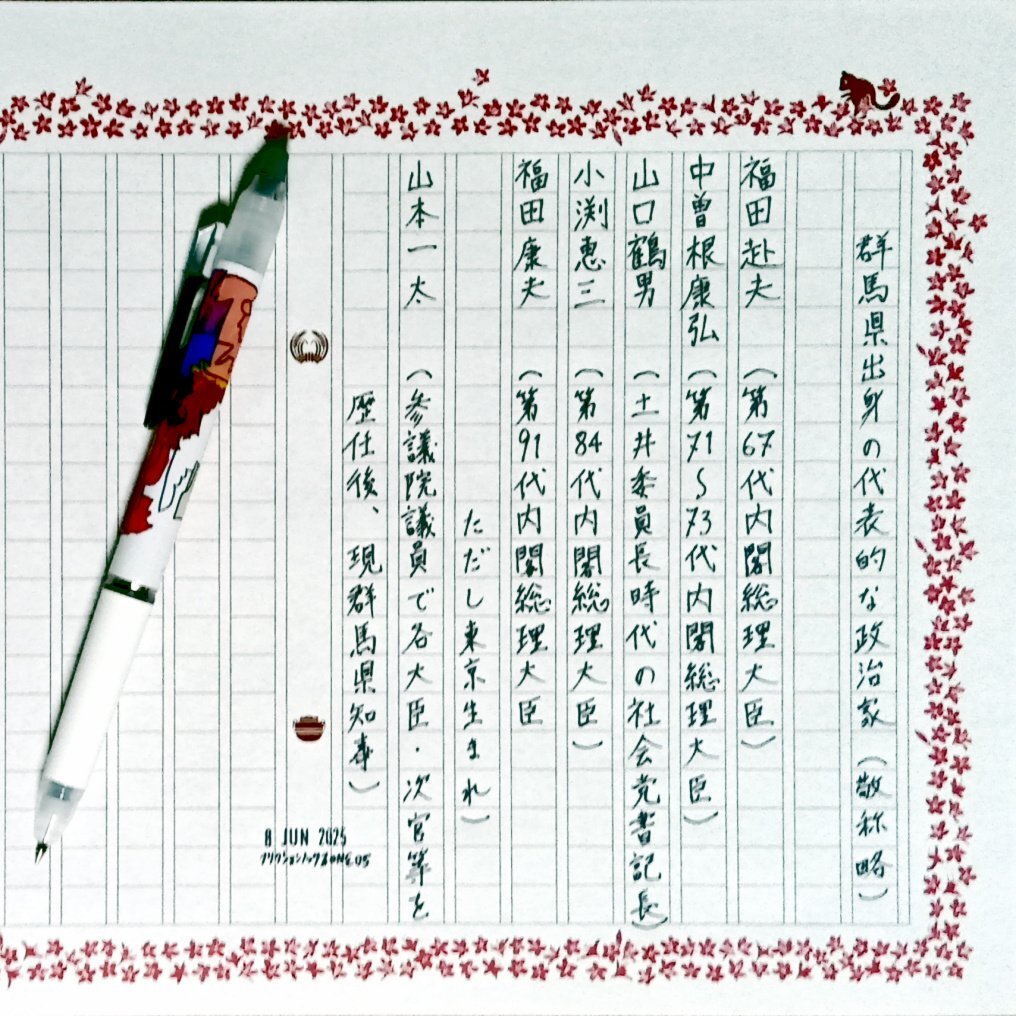 群馬県出身の代表的な政治家（敬称略）
福田赳夫（第67代内閣総理大臣）
中曽根康弘（第71〜73代内閣総理大臣）
山口鶴男（土井委員長時代の社会党書記長）
小渕恵三（第84代内閣総理大臣）
福田康夫（第91代内閣総理大臣
ただし東京生まれ）
山本一太（参議院議員で各大臣・次官等を
歴任後、現群馬県知事）
8 JUN 2025
フリクションノックゾーン0.5